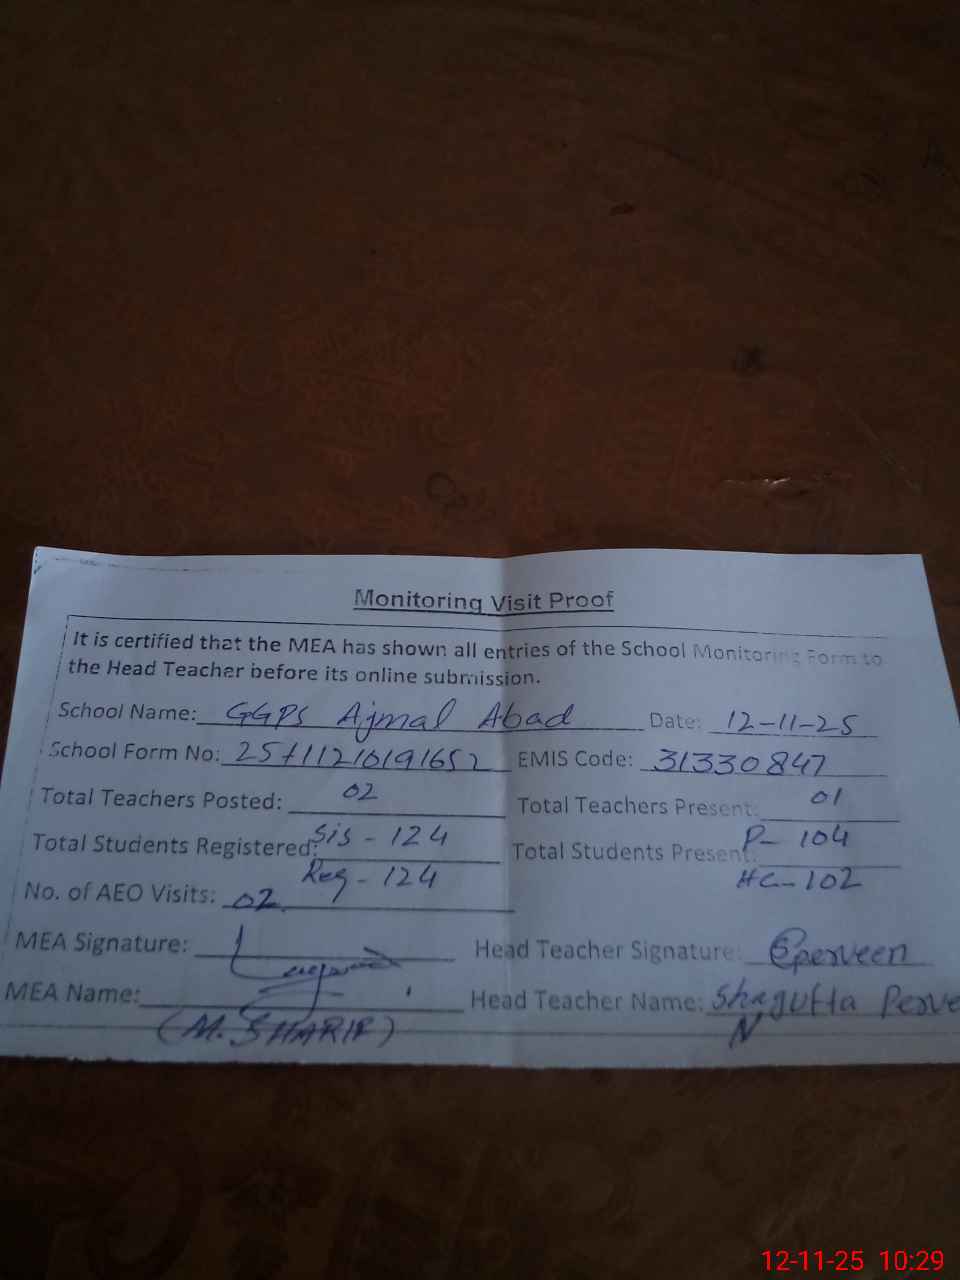 Monitoring Visit Proof
It is certified that the MEA has shown all entries of the School Monitoring Form to
the Head Teacher before its online submission.
School Name: GGPS Ajmal Abad Date: 12-11-25
School Form No: EMIS Code: 31330847
Total Teachers Posted: 02 Total Teachers Present: 01
Total Students Registered: Sis - 124 Total Students Present: P- 104
Reg - 124 HC- 102
No. of AEO Visits: 02
MEA Signature: Head Teacher Signature: perveen
MEA Name: Head Teacher Name: Shagufta Perve
(M. SHARIF) N
12-11-25 10:29